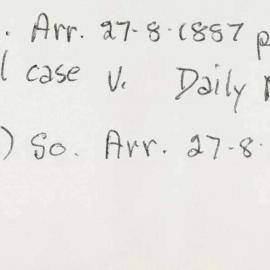 . Arr. 27-8-1887 p
l case v. Daily
) So. Arr. 27-8-